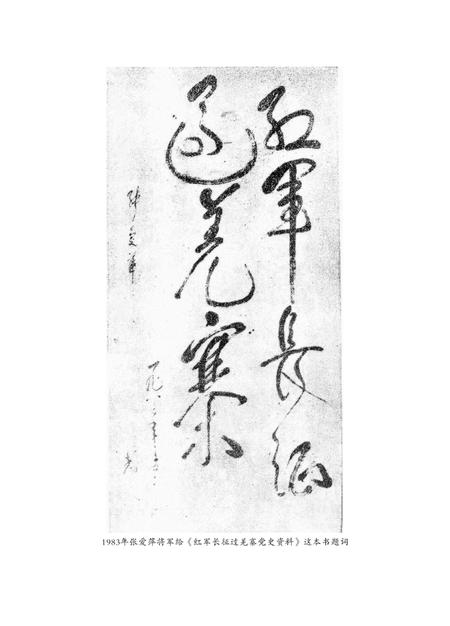 红軍長征
過羌寨
张爱萍
一九八三年
1983年张爱萍将军给《红军长征过羌寨党史资料》这本书题词